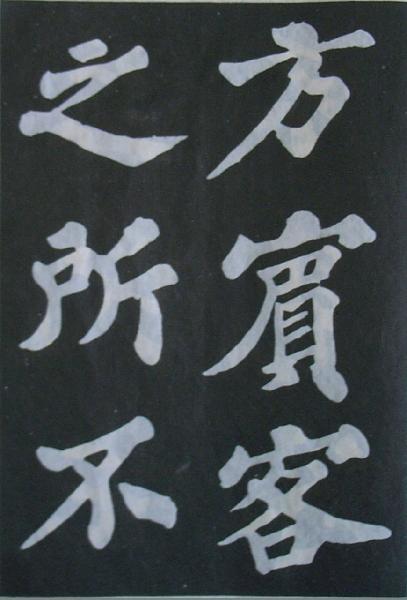 方賓客
之所不